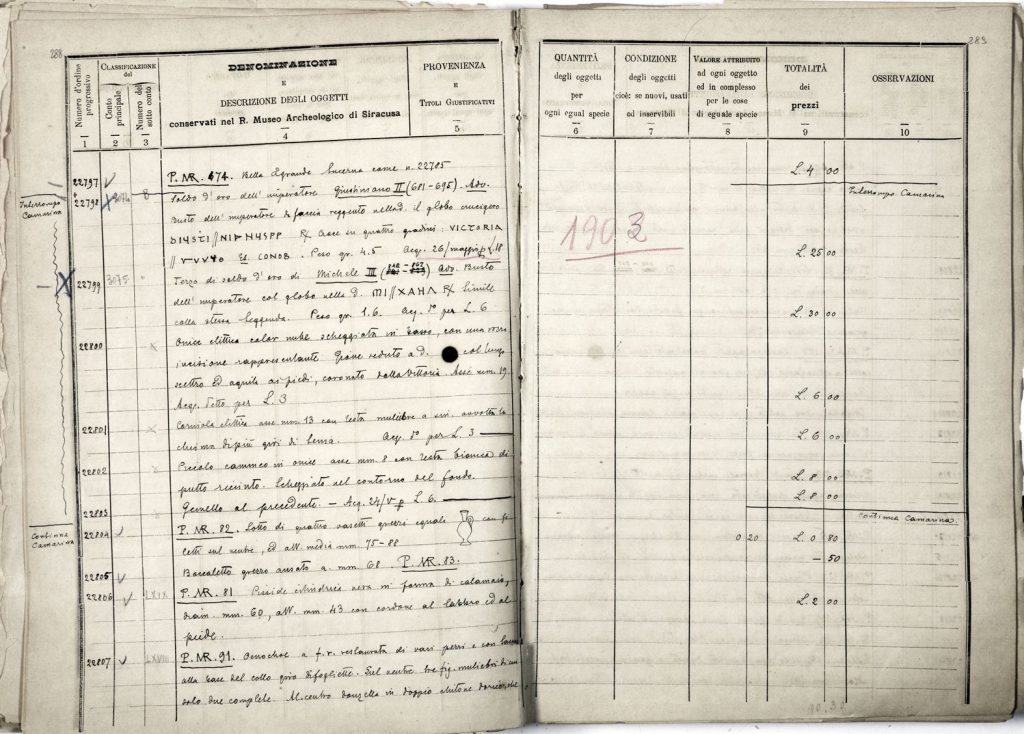 288
Numero d'ordine progressivo
CLASSIFICAZIONE del
Conto principale
Numero del sotto conto
DENOMINAZIONE
E
DESCRIZIONE DEGLI OGGETTI
conservati nel R. Museo Archeologico di Siracusa
PROVENIENZA
E
TITOLI GIUSTIFICATIVI
1 2 3 4 5
22797 P. NR. 674. Bella e grande lucerna come n. 22785
Interrompo Camarina
22798 8 Soldo d'oro dell'imperatore Giustiniano II (681-695). Adv.
Busto dell'imperatore di faccia reggente nella d. il globo crucigero
VICTORIA
Es. CONOB. Peso gr. 4.5 Acq. 26/maggio p. L. 18
22799 3075 Terzo di soldo d'oro di Michele III Adv. Busto
dell'imperatore col globo nella d. Simile
colla stessa leggenda. Peso gr. 1.6. Acq. do per L. 6
22800 Onice elittica color nube scheggiata in basso, con una rozza
incisione rappresentante Giove seduto a d. col lungo
scettro ed aquila ai piedi, coronato dalla Vittoria. Asse mm. 19
Acq. detto per L. 3
22801 Corniola elittica asse mm. 13 con testa muliebre a sin. avvolta la
chioma di più giri di benda. Acq. do per L. 3
22802 Piccolo cammeo in onice asse mm. 8 con testa bianca di
putto ricciuto. Scheggiato nel contorno del fondo.
22803 Gemello al precedente. — Acq. 24/V p. L. 6.
Continua Camarina
22804 P. NR. 82. Lotto di quattro vasetti grezzi eguale con fi
letti sul ventre, ed alt. media mm. 75-88
22805 Boccaletto grezzo ansato a. mm. 68. P. NR. 83.
22806 LXIX P. NR. 81 Pisside cilindrica nera in forma di calamaio,
diam. mm. 60, alt. mm. 43 con cordone al labbro ed al
piede.
22807 LXVIII P. NR. 91. Oenochoe a f. r. restaurata di vari pezzi e con
alla base del collo giro di fogliette. Sul ventre tre fig. muliebri di cui
solo due complete. Al centro donzella in doppio chitone dorico, che
289
QUANTITÀ
degli oggetti
per
ogni egual specie
6
CONDIZIONE
degli oggetti
cioè: se nuovi, usati
ed inservibili
7
VALORE ATTRIBUITO
ad ogni oggetto
ed in complesso
per le cose
di eguale specie
8
TOTALITÀ
dei
prezzi
9
OSSERVAZIONI
10
L. 4 00
Interrompo Camarina
1903
L. 25 00
L. 30 00
L. 6 00
L. 6 00
L. 8 00
L. 8 00
Continua Camarina
0 20 L. 0 80
— 50
L. 2 00
90.30